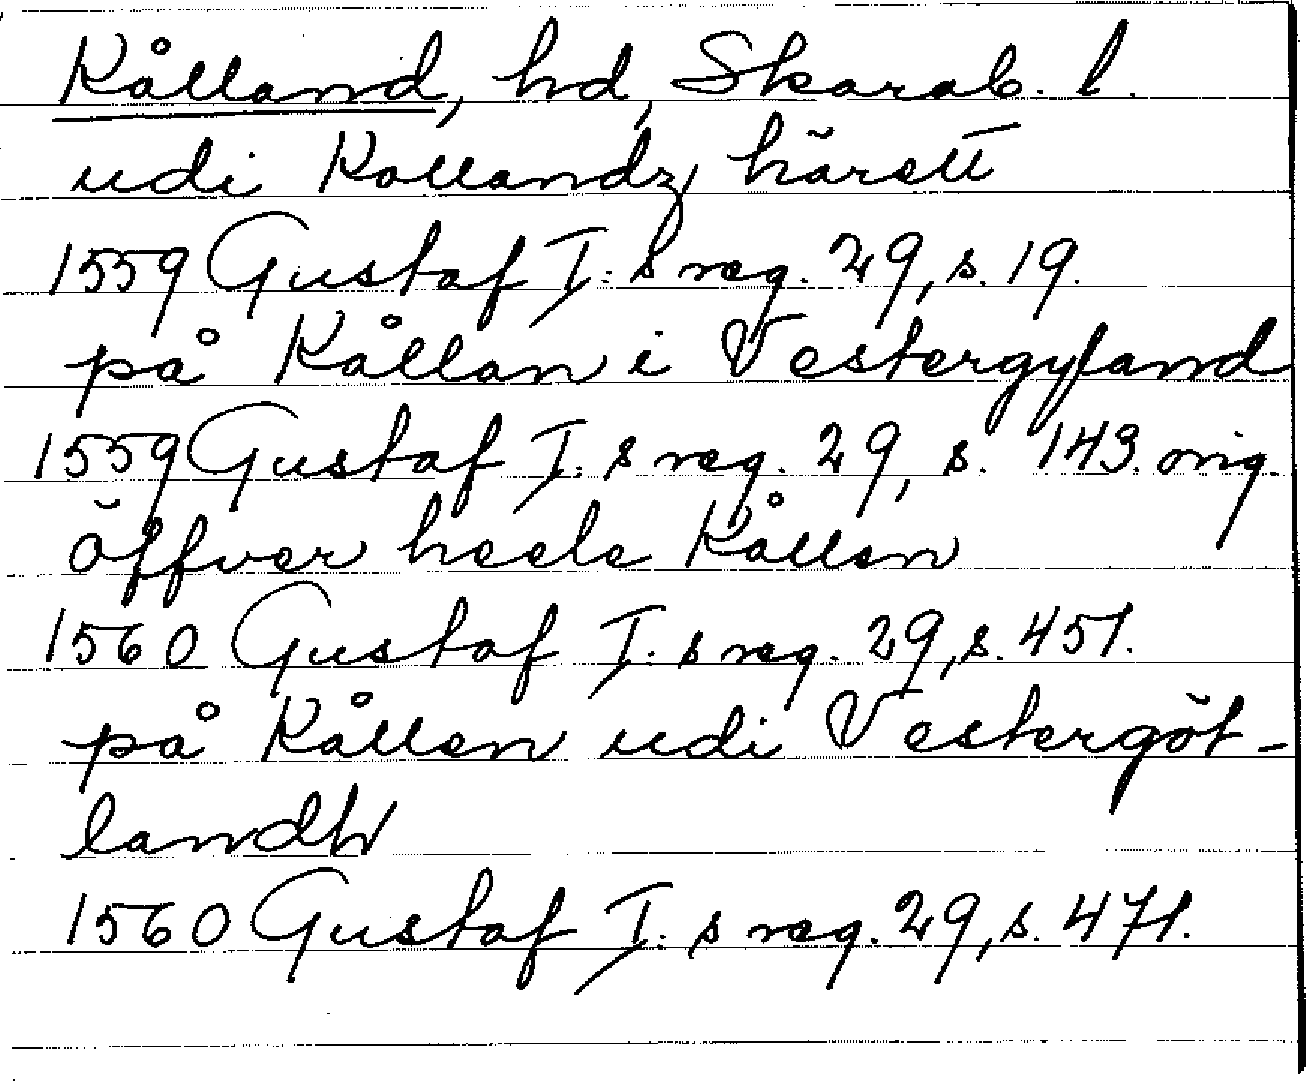 Kålland, hd, Skarab. l.
udi Kollandz härett
1559 Gustaf I:s reg. 29, s. 19.
på Kållan i Vestergyland
1559 Gustaf I:s reg. 29, s. 143. orig.
öffver heele Kållen
1560 Gustaf I:s reg. 29, s. 451.
på Kållen udi Vestergöt-
landh
1560 Gustaf I:s reg. 29, s. 471.